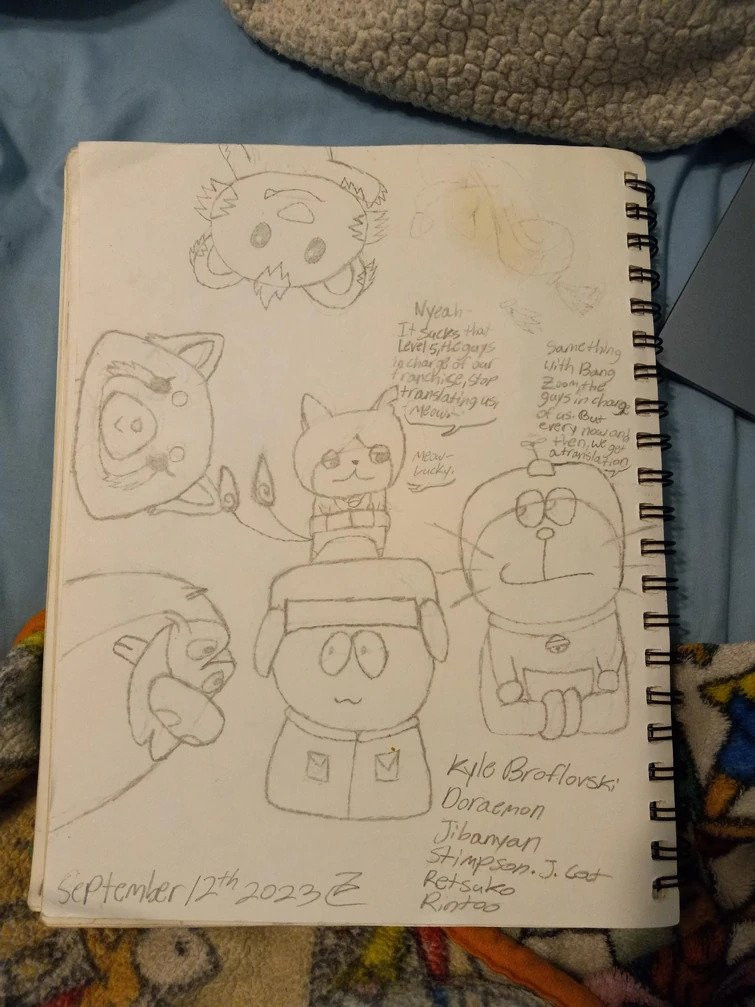 Nyeah-
It sucks that
Level 5, the guys
in charge of our
franchise, stop
translating us,
Meow-
Meow-
Lucky.
Something
with Bang
Zoom, the
guys in charge
of us. But
every now and
then, we get
a translation
Kyle Broflovski
Doraemon
Jibanyan
Stimpson. J. Cat
Retsuko
Rintoo
September 12th 2023